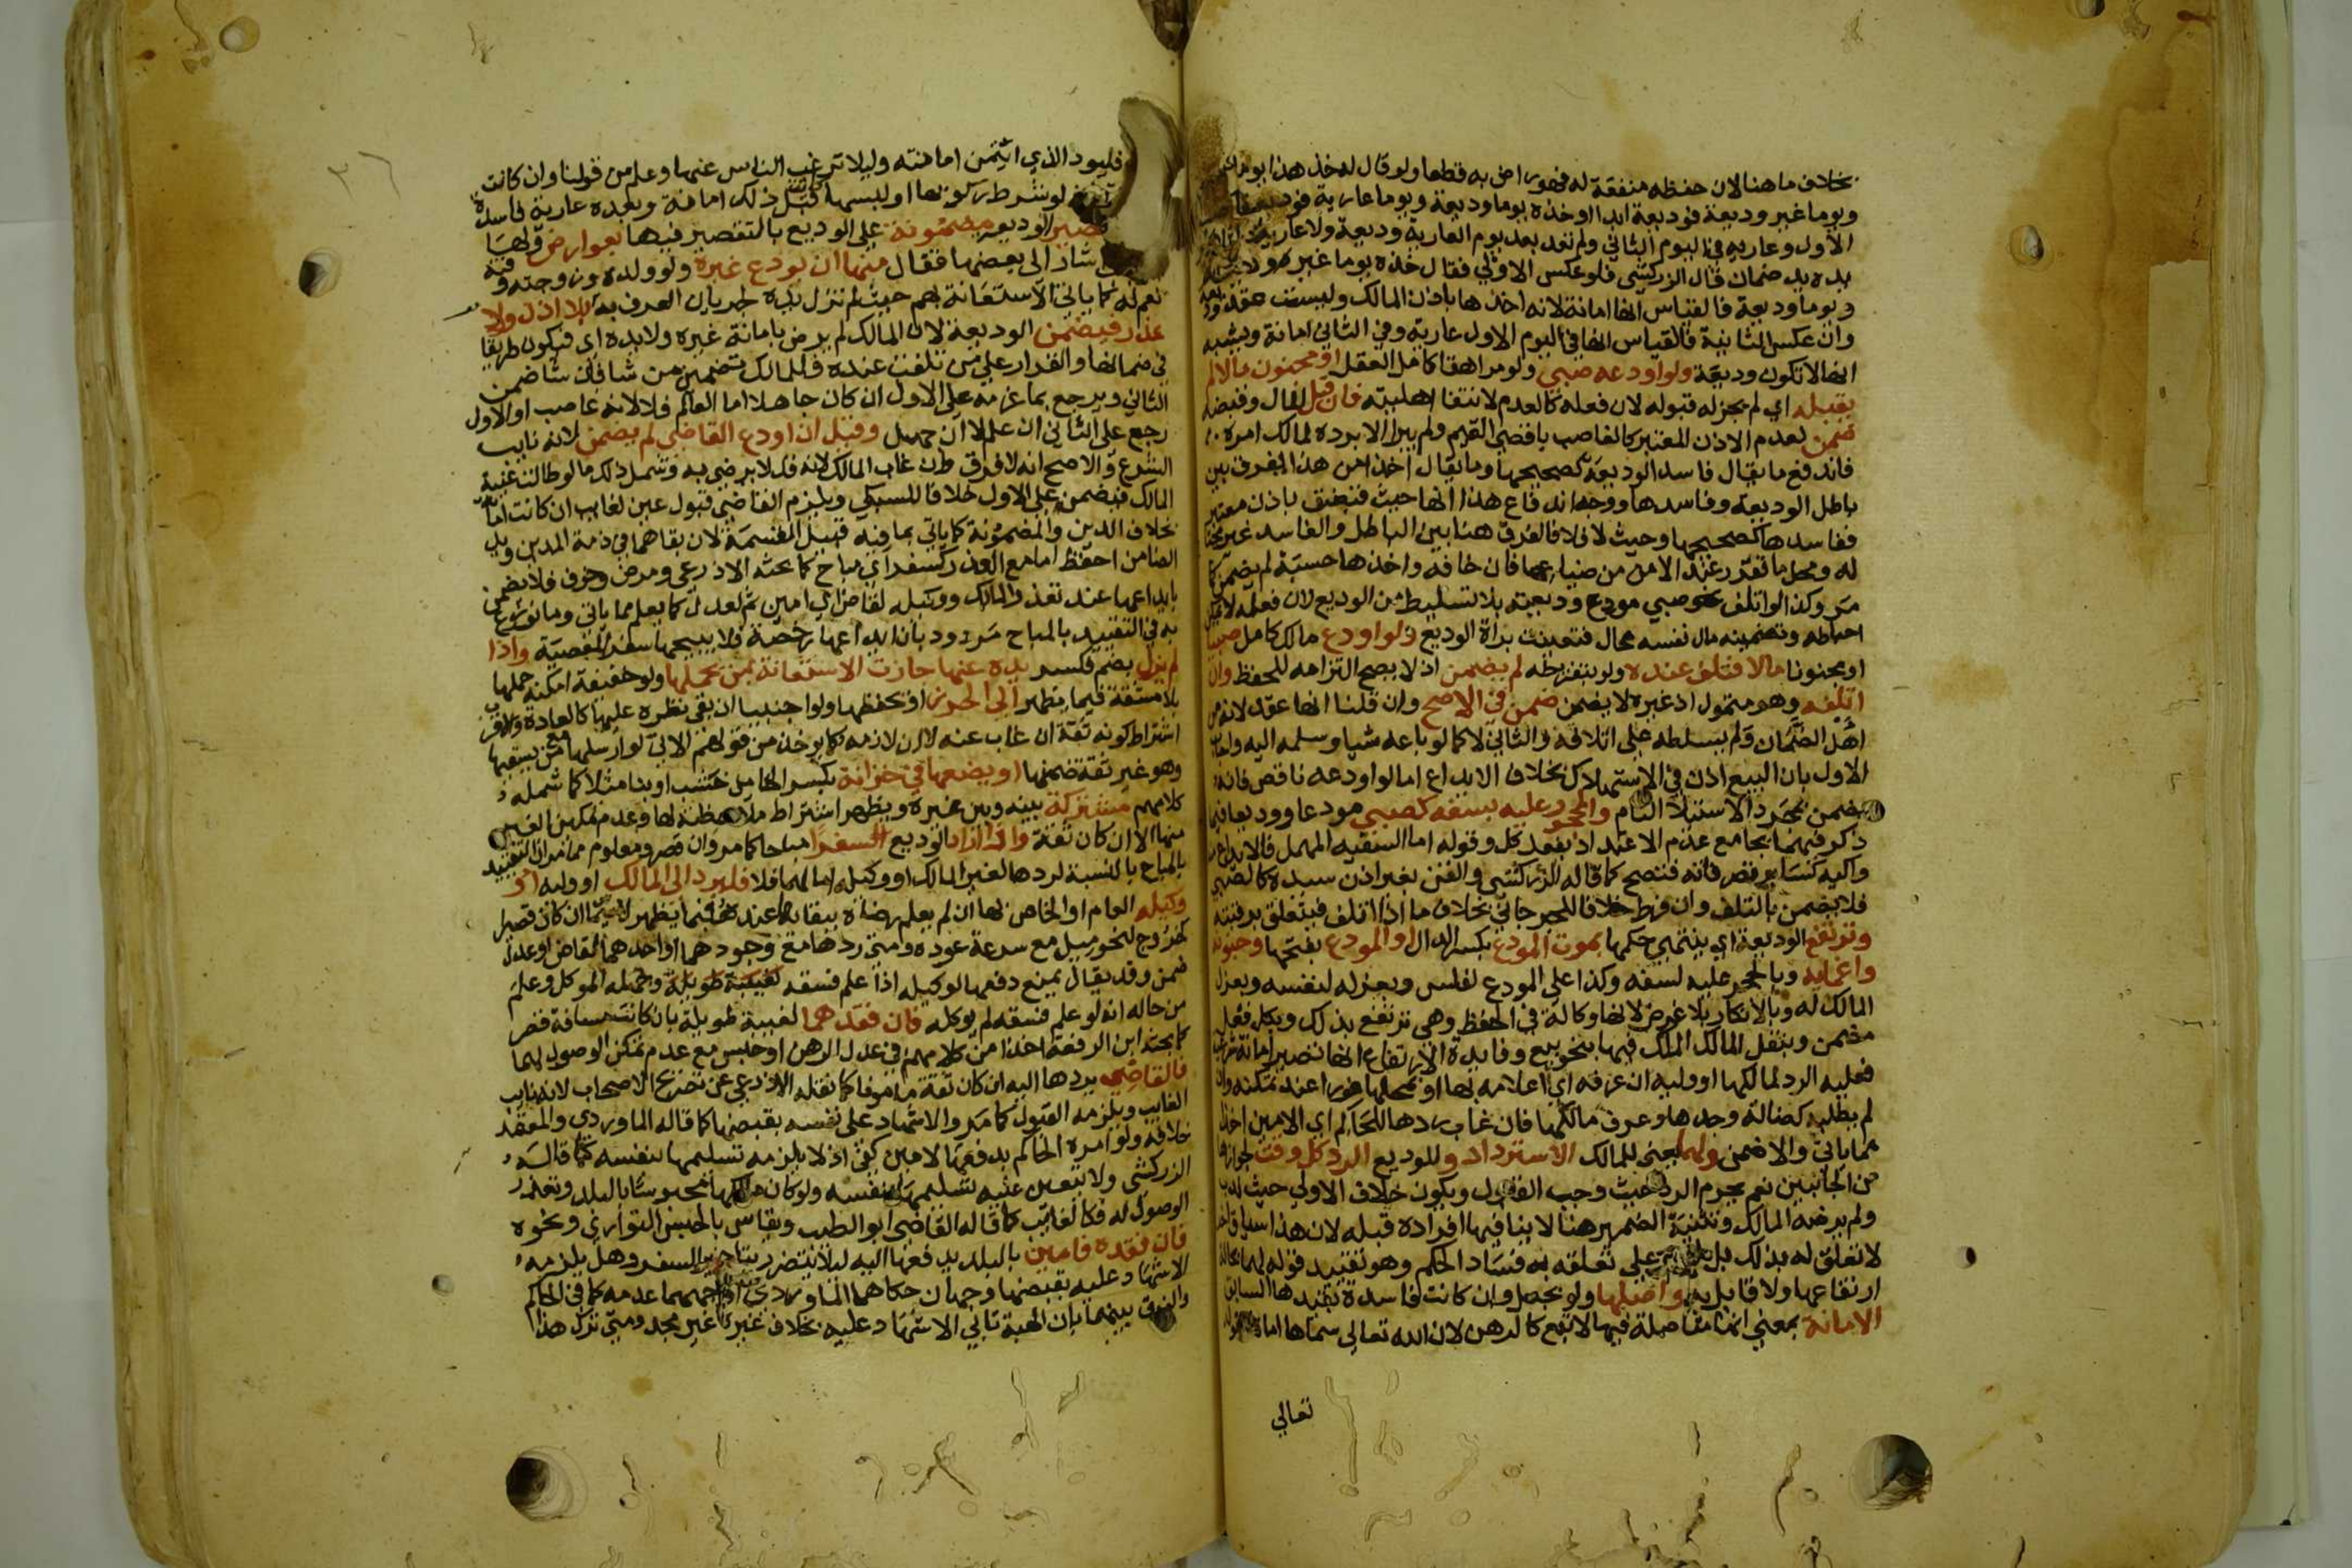 بخلاف ما هنا لان حفظه منفعة له فهو راض به قطعا ولو قال له خذ هذا يوما
ويوما غير وديعة فوديعة ابدا او خذه يوما وديعة ويوما عارية فوديعة
الأول وعارية في اليوم الثاني ولم تعد بعد يوم العارية وديعة ولا عارية
يده يد ضمان قال الزركشي فلو عكس الاولى فقال خذه يوما غير
ويوما وديعة فالقياس انها امانة لانه اخذها باذن المالك وليست عقد
وان عكس الثانية فالقياس انها في اليوم الاول عارية وفي الثاني امانة ويشبه
انها لا تكون وديعة ولو اودعه صبي ولو مراهقا كامل العقل او مجنون مالا لم
يقبله اي لم يجز له قبوله لان فعله كالعدم لانتفا اهليته فان قبل المال وقبضه
ضمن لعدم الاذن المعتبر كالغاصب باقصى القيم ولم يبرا الا برده لمالك امره
فاندفع ما يقال فاسد الوديعة كصحيحها وما يقال اخذا من هذا يفرق بين
باطل الوديعة وفاسدها ووجه اندفاع هذا انها حيث قبضت باذن معتبر
ففاسدها كصحيحها وحيث لا فلا فالفرق هنا بين الباطل والفاسد غير
له ومحل ما تقرر عند الامن من ضياعها فان خافه واخذها حسبة لم يضمن
مر وكذا لو اتلف نحو صبي مودع وديعته بلا تسليط من الوديع لان فعله لا يمكن
احباطه وتضمينه مال نفسه محال فتعينت براة الوديع ولو اودع مالك كامل صبيا
او مجنونا مالا فتلف عنده ولو بتفريطه لم يضمن اذ لا يصح التزامه للحفظ وان
اتلفه وهو متمول اذ غيره لا يضمن ضمن في الاصح وان قلنا انها عقد لانه من
اهل الضمان ولم يسلطه على اتلافه والثاني لا كما لو باعه شيا وسلمه اليه
الاول بان البيع اذن في الاستهلاك بخلاف الايداع اما لو اودعه ناقص فانه
يضمن بمجرد الاستيلا التام والمحجور عليه بسفه كصبي مودعا ووديعا فيما
ذكر فيهما بجامع عدم الاعتداد بفعد كل وقوله اما السفيه المهمل فالايداع
واليه كسائر تصرفاته فتصح كما قاله الزركشي والقن بغير اذن سيده كالصبي
فلا يضمن بالتلف وان فرط خلافا للجرجاني بخلاف ما اذا اتلف فيتعلق برقبته
وترتفع الوديعة اي ينتهي حكمها بموت المودع بكسر الدال او المودع بفتحها وجنونه
واغمايه وبالحجر عليه لسفه وكذا على المودع لفلس وبعزله لنفسه وبعزل
المالك له وبالانكار بلا غرض لانها وكالة في الحفظ وهي ترتفع بذلك وبكل فعل
مضمن وبنقل المالك الملك فيها بنحو بيع وفايدة الارتفاع انها تصير امانة شرعية
فعليه الرد لمالكها او وليه ان عرفه اي اعلامه بها او بمحلها فورا عند تمكنه وان
لم يطلبه كضالة وجدها وعرف مالكها فان غاب ردها للحاكم اي الامين اخذا
مما ياتي والا ضمن ولهما يعني للمالك الاسترداد وللوديع الرد كل وقت لجوازها
من الجانبين نعم يحرم الرد حيث وجب القبول ويكون خلاف الاولى حيث ندب
ولم يرضه المالك وتثنية الضمير هنا لا ينافيها افراده قبله لان هذا سياق
لا تعلق له بذلك بل على تعلقه به فساد الحكم وهو تقييد قوله لهما
ارتفاعها ولا قايل به واصلها ولو بجعل وان كانت فاسدة تقييدها السابق
الامانة بمعنى انها متاصلة فيها لا تبع كالرهن لان الله تعالى سماها امانة
تعالى
٣٦
فليود الذي ائتمن امانته وليلا ترغب الناس عنها وعلم من قولنا وان كانت
لو شرط ركوبها او لبسها كانت قبل ذلك امانة وبعده عارية فاسدة
تصير الوديعة مضمونة على الوديع بالتقصير فيها بعوارض ولها
اشار الى بعضها فقال منها ان يودع غيره ولو ولده وزوجته وقنه
نعم له كما ياتي الاستعانة بهم حيث لم تزل يده لجريان العرف به بلا اذن ولا
عذر فيضمن الوديعة لان المالك لم يرض بامانة غيره ولا يده اي فيكون طريقا
في ضمانها والقرار على من تلفت عنده فللمالك تضمين من شا فان شا ضمن
الثاني ويرجع بما غرمه على الاول ان كان جاهلا اما العالم فلا لانه غاصب او الاول
رجع على الثاني ان علم لا ان جهل وقيل ان اودع القاضي لم يضمن لانه نايب
الشرع والاصح انه لا فرق وان غاب المالك لانه قد لا يرضى به وشمل ذلك ما لو طالت غيبة
المالك فيضمن على الاول خلافا للسبكي ويلزم القاضي قبول عين لغايب ان كانت امانة
بخلاف الدين والمضمونة كما ياتي بما فيه قبيل القسمة لان بقاهما في ذمة المدين ويد
الضامن احفظ اما مع العذر كسفر اي مباح كما بحثه الاذرعي ومرض وخوف فلا يضمن
بايداعها عند تعذر المالك ووكيله لقاض اي امين ثم لعدل كما يعلم مما ياتي وما نوزع
به في التقييد بالمباح مردود بان ايداعها رخصة فلا يبيحها سفر المعصية واذا
لم يزل بضم فكسر يده عنها جازت الاستعانة بمن يحملها ولو خفيفة امكنه حملها
بلا مشقة فيما يظهر الى الحرز او يحفظها ولو اجنبيا ان بقي نظره عليها كالعادة
اشتراط كونه ثقة ان غاب عنه لا ان لازمه كما يوخذ من قولهم الاتي لو ارسلها مع من يسقيها
وهو غير ثقة ضمنها او يضعها في خزانة بكسر الخا من خشب او بنا مثلا كما شمله
كلامهم مشتركة بينه وبين غيره ويظهر اشتراط ملاحظته لها وعدم تمكين الغير
منها الا ان كان ثقة واذا اراد الوديع سفرا مباحا كما مر وان قصر ومعلوم مما مر ان التقييد
بالمباح بالنسبة لردها لغير المالك او وكيله اما لهما فلا فليرد الى المالك او وليه او
وكيله العام او الخاص بها ان لم يعلم رضاه ببقائها عنده فيما يظهر لا سيما ان كان قصيرا
كخروج لنحو ميل مع سرعة عوده ومتى ردها مع وجودهما او احدهما لقاض او عدل
ضمن وقد يقال يمنع دفعها لوكيله اذا علم فسقه كغيبته طويلة وجهله الموكل وعلم
من حاله انه لو علم فسقه لم يوكله فان فقدهما لغيبة طويلة بان كانت مسافة قصر
كما بحثه ابن الرفعة اخذا من كلامهم في عدل الرهن او حبس مع عدم تمكن الوصول لهما
فالقاضي يردها اليه ان كان ثقة مامونا كما نقله الاذرعي عن تصريح الاصحاب لانه نايب
الغايب ويلزمه القبول كما مر والاشهاد على نفسه بقبضها كما قاله الماوردي والمعتمد
خلافه ولو امره الحاكم بدفعها لامين كفى اذ لا يلزمه تسليمها بنفسه كما قاله
الزركشي ولا يتعين عليه تسليمها بنفسه ولو كان مالكها محبوسا بالبلد وتعذر
الوصول له فكالغايب كما قاله القاضي ابو الطيب ويقاس بالحبس التواري ونحوه
فان فقده فامين بالبلد يدفعها اليه ليلا يتضرر بتاخير السفر وهل يلزمه
الاشهاد عليه بقبضها وجهان حكاهما الماوردي اوجههما عدمه كما في الحاكم
والفرق بينهما بان ابهة تابى الاشهاد عليه بخلاف غيره غير مجد ومتى ترك هذا